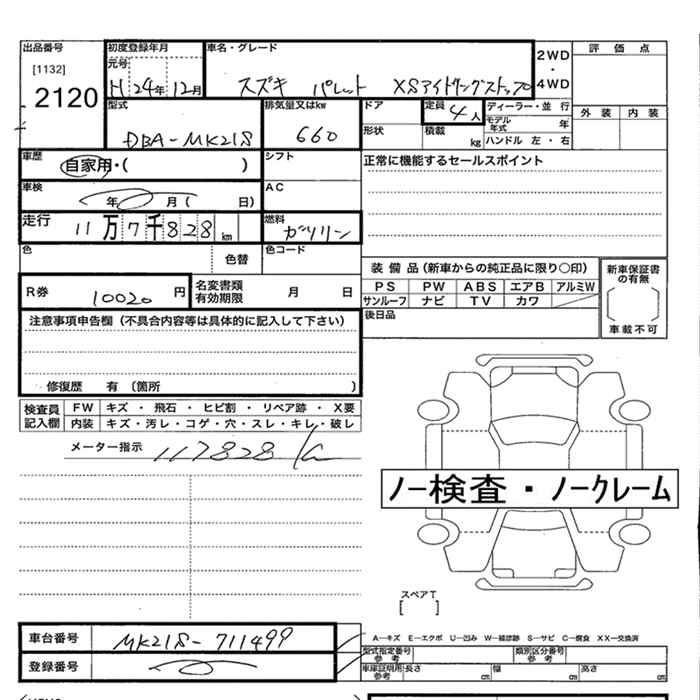 出品番号 初度登録年月 車名・グレード 2WD 評価点
[1132] 元号 ・
2120 H 24年 12月 スズキ パレット XSアイドリングストップ 4WD
型式 排気量又はkw ドア 定員 4人 ディーラー・並行 外装 内装
DBA-MK21S 660 形状 積載 kg モデル年式 年
ハンドル 左・右
車歴 自家用・( ) シフト 正常に機能するセールスポイント
車検 年 月( 日) AC
走行 11万7千828km 燃料 ガソリン
色 色替 色コード
装備品(新車からの純正品に限り○印) 新車保証書の有無
R券 10020円 名変書類有効期限 月 日 PS PW ABS エアB アルミW
サンルーフ ナビ TV カワ
後日品 車載不可
注意事項申告欄(不具合内容等は具体的に記入して下さい)
修復歴 有(箇所 )
検査員記入欄 FW キズ・飛石・ヒビ割・リペア跡・X要
内装 キズ・汚レ・コゲ・穴・スレ・キレ・破レ
メーター指示 117828 K
ノー検査・ノークレーム
スペアT
[ ]
車台番号 MK21S-711499
A-キズ E-エクボ U-凹み W-補修跡 S-サビ C-腐食 XX-交換済
登録番号 型式指定番号 参考 類別区分番号 参考
車庫証明用 参考 長さ cm 幅 cm 高さ cm